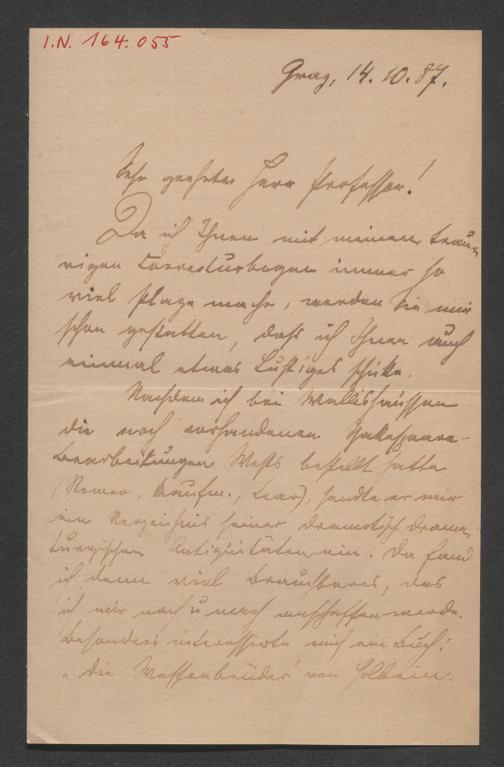 I.N. 164.055
Graz, 14.10.87.
Sehr geehrter Herr Professor!
Da ich Ihnen mit meinen trau-
rigen Correcturbogen immer so
viel Plage mache, werden Sie mir
schon gestatten, daß ich Ihnen auch
einmal etwas Lustiges schicke.
Nachdem ich bei Wallishausser
die noch vorhandenen Shakespeare-
bearbeitungen Wests bestellt hatte
(Romeo, Kaufm., Lear), sandte er mir
ein Verzeichnis seiner dramatisch drama-
turgischen Antiquitäten ein. Da fand
ich denn viel Brauchbares, das
ich mir nach u nach anschaffen werde.
Besonders interessirte mich ein Buch:
„Die Waffenbrüder" von Holbein.